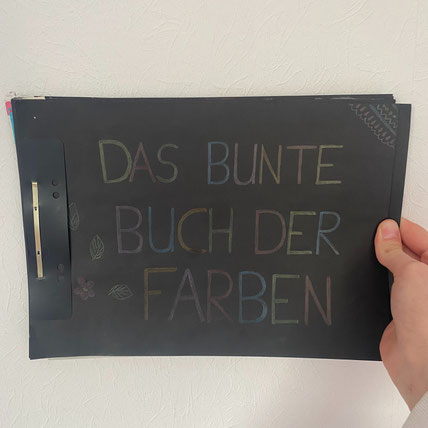 DAS BUNTE
BUCH DER
FARBEN